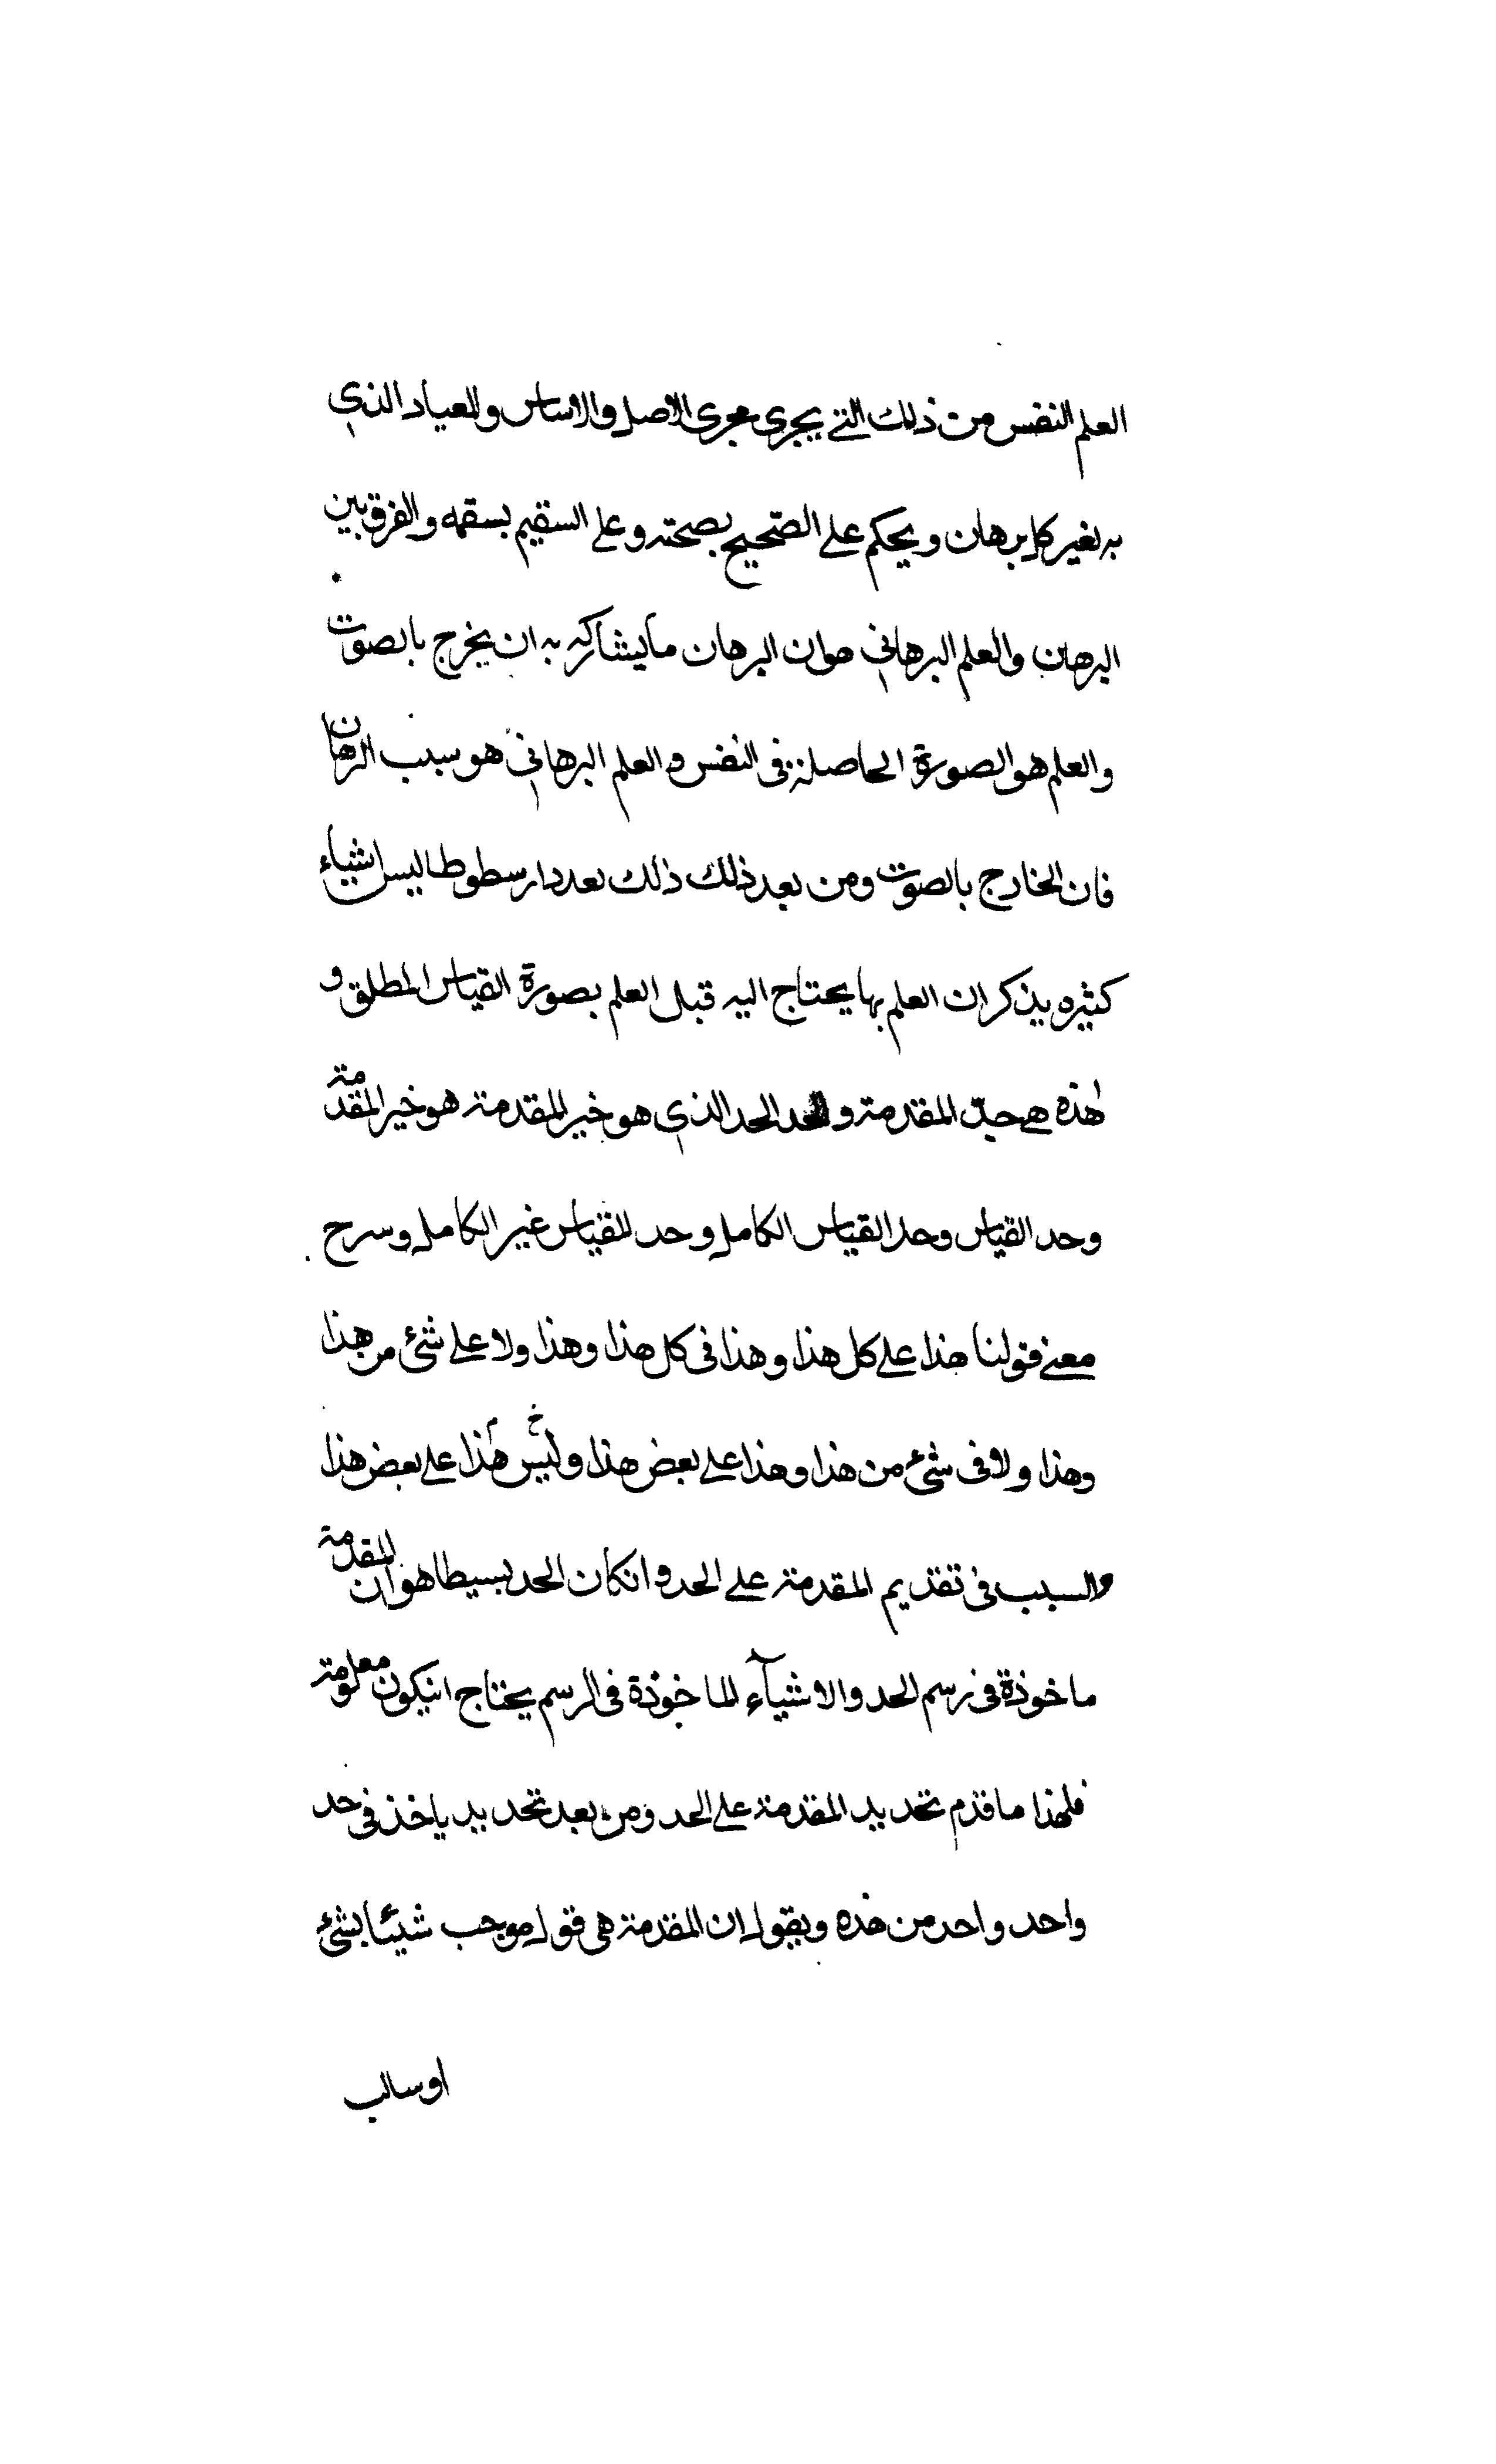 العلم النفس من ذلك التي يجرى مجرى الاصل والاساس والعياد الذي
به نغير كل برهان ويحكم على الصحيح بصحته وعلى السقيم بسقمه والفرق بين
البرهان والعلم البرهاني هو ان البرهان ما يشاركه به ان يخرج بالصوت
والعلم هو الصورة الحاصلة فى النفس والعلم البرهاني هو سبب البرهان
فان الخارج بالصوت ومن بعد ذلك ذلك بعدد ارسطوطاليس اشياء
كثيره يذكر ان العلم بها يحتاج اليه قبل العلم بصورة القياس المطلق و
هذه هي حد المقدمة والحد الحد الذي هو خبر المقدمة هو خبر المقدمة
وحد القياس وحد القياس الكامل وحد القياس غير الكامل وسرح
معنى قولنا هذا على كل هذا وهذا فى كل هذا وهذا ولا على شئ من هذا
وهذا ولا فى شئ من هذا وهذا على بعض هذا وليس هذا على بعض هذا
والسبب فى تقديم المقدمة على الحد وانكان الحد بسيطا هو ان المقدمة
ماخوذة فى رسم الحد والاشيآء الماخوذة فى الرسم يحتاج انيكون معلومة
فلهذا ما قدم تحديد المقدمة على الحد ومن بعد تحديد ياخذ فى حد
واحد واحد من هذه ويقول ان المقدمة هى قول موجب شيئا بشئ
او سالب